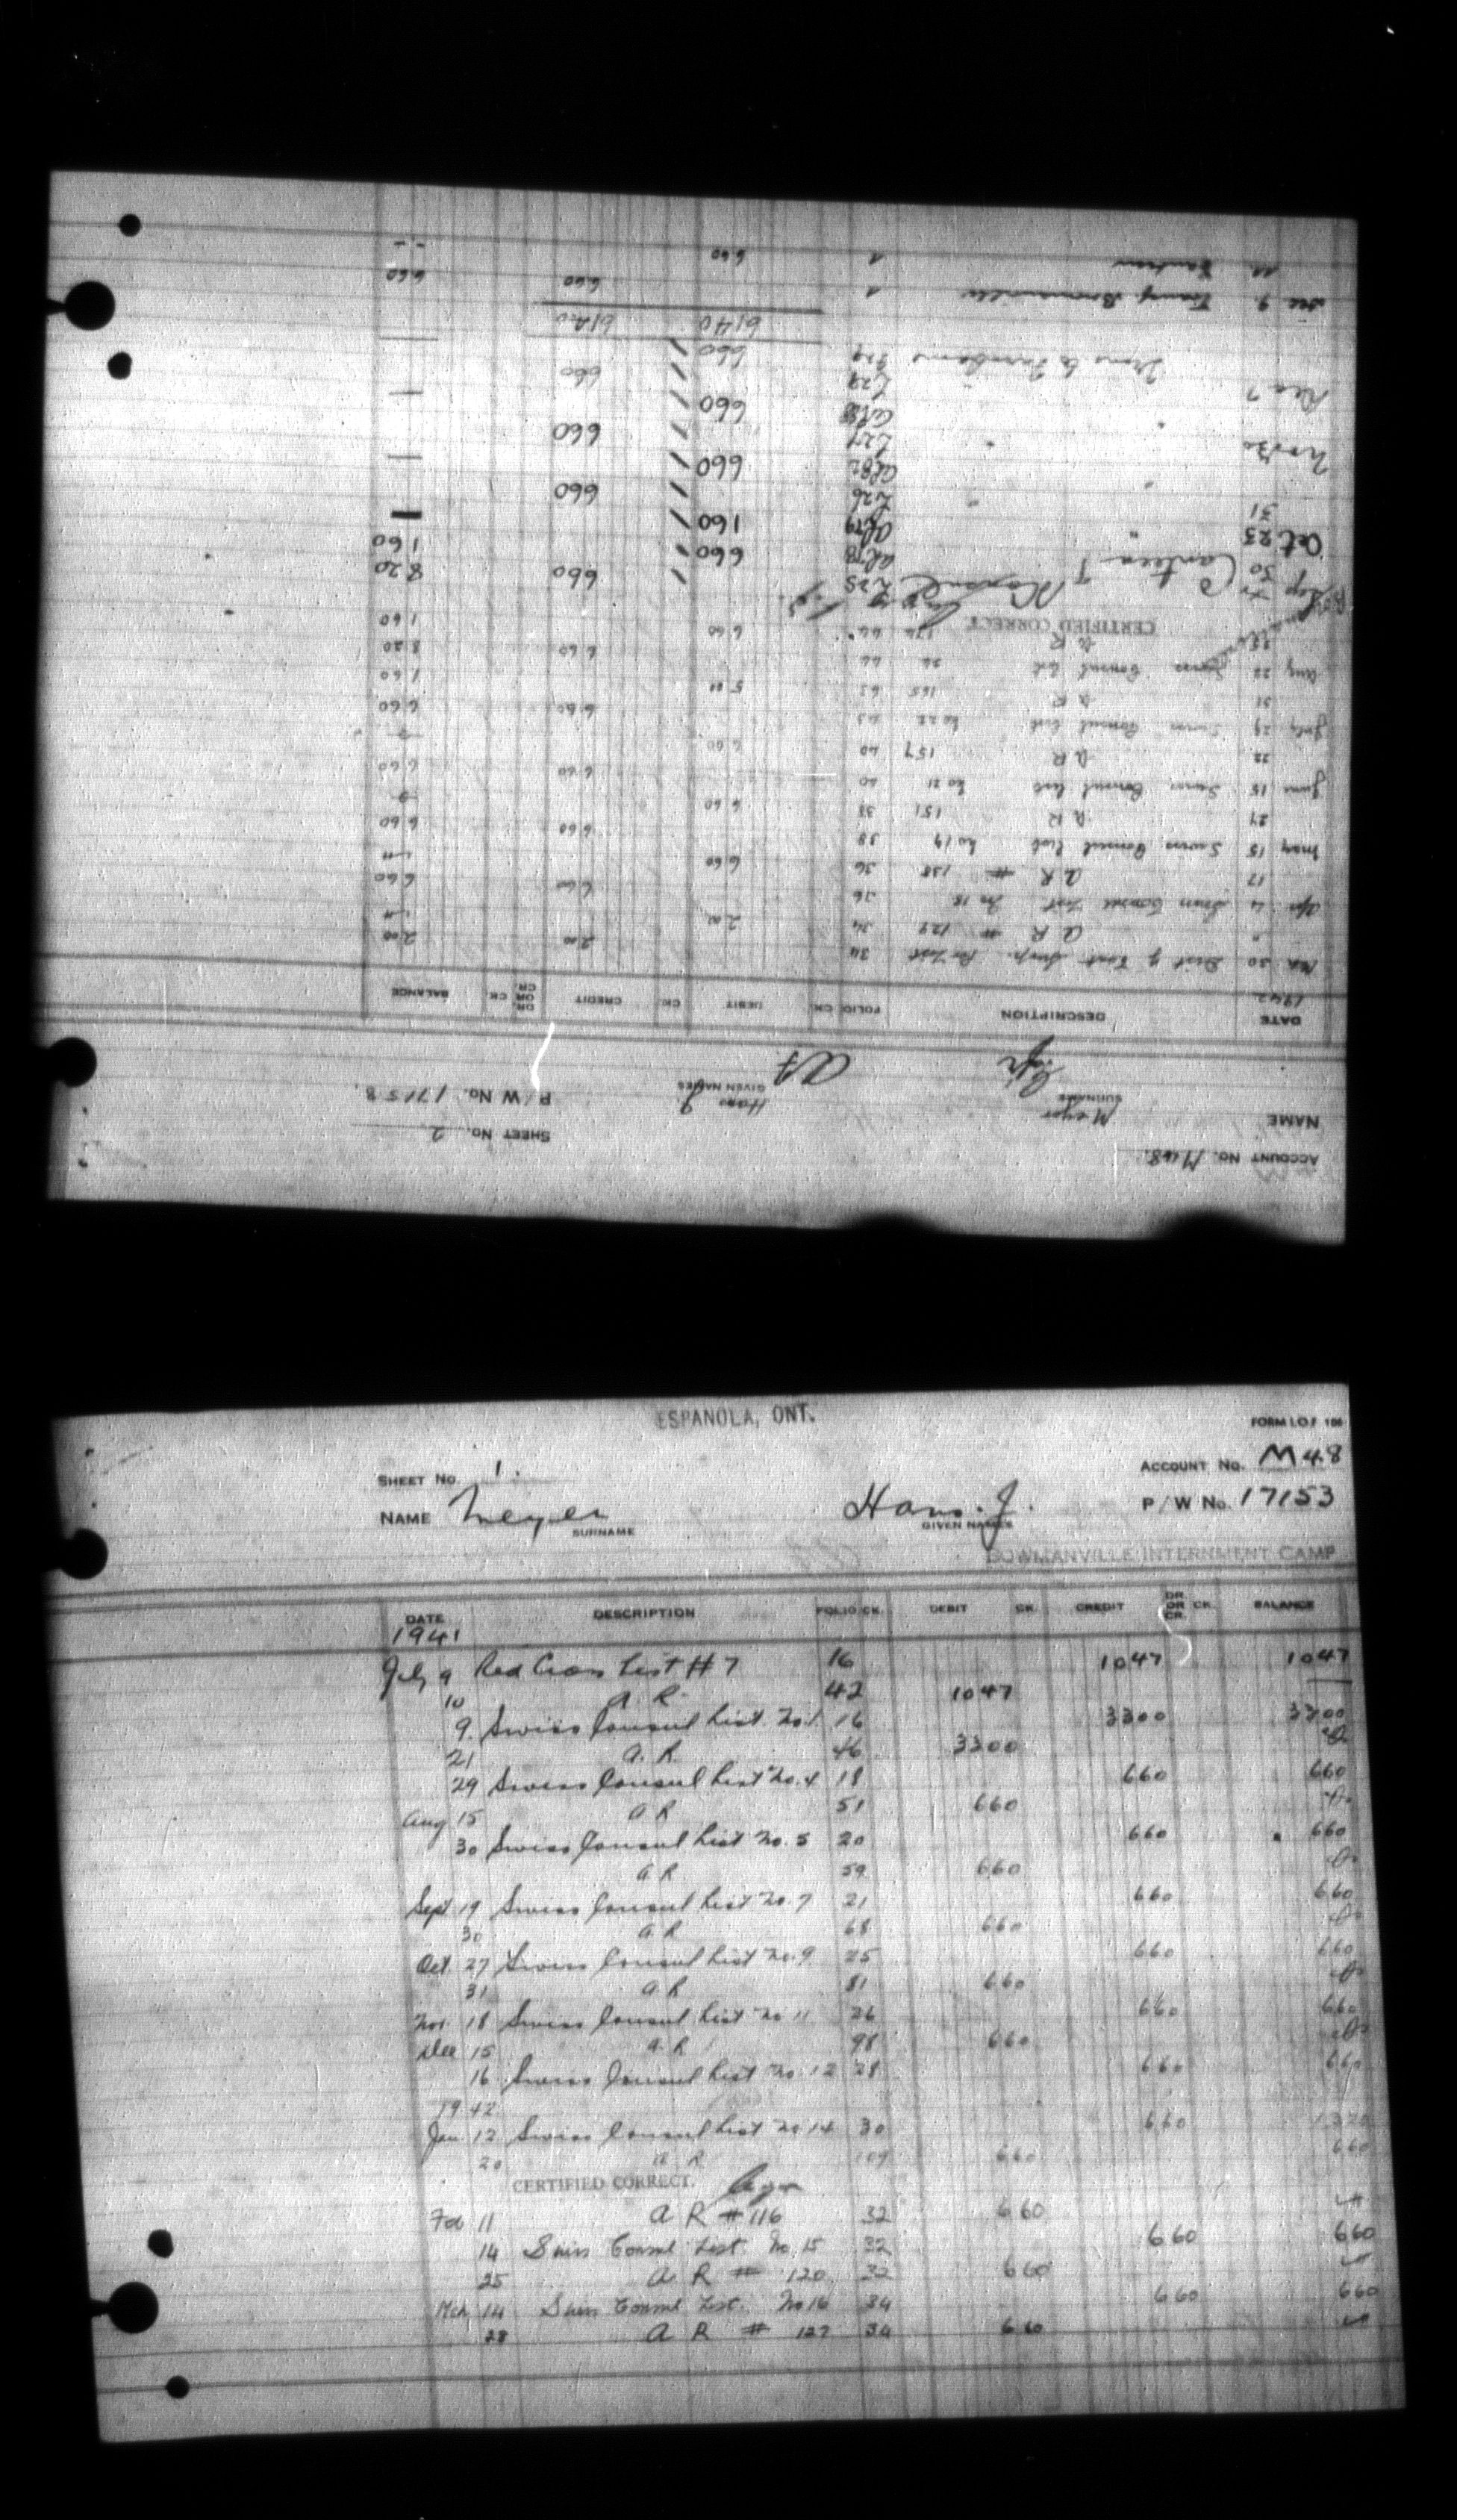 ESPANOLA, ONT.
FORM I.O.F 106
SHEET No. 1.
ACCOUNT No. M48
NAME Meyer Hans. J. P/W No. 17153
SURNAME GIVEN NAMES
BOWMANVILLE INTERNMENT CAMP
DATE DESCRIPTION FOLIO CK. DEBIT CK. CREDIT DR. OR CR. CK. BALANCE
1941
July 9 Red Cross List #7 16 1047 1047
10 A. R. 42 1047
9. Swiss Consul List No. 1 16 3300 3300
21 A. R. 46 3300
29 Swiss Consul List No. 4 18 660 660
Aug 15 A R 51 660
30 Swiss Consul List No. 5 20 660 660
A R 59 660
Sept 19 Swiss Consul List No. 7 21 660 660
30 A. R 68 660
Oct. 27 Swiss Consul List No. 9 25 660 660
31 A R 81 660
Nov. 18 Swiss Consul List No 11 26 660 660
Dec 15 A. R 98 660
16 Swiss Consul List No. 12 28 660 660
1942
Jan 12 Swiss Consul List No 14 30 660 1320
20 A R 109 660 660
CERTIFIED CORRECT.
Feb 11 A R #116 32 660
14 Swiss Consul List. No. 15 32 660 660
25 A R # 120 32 660
Mch 14 Swiss Consul List. No 16 34 660 660
28 A R # 127 34 660
ACCOUNT No. M48. SHEET No. 2
NAME Meyer Hans J P/W No. 17153.
SURNAME GIVEN NAMES
DATE DESCRIPTION FOLIO CK. DEBIT CK. CREDIT DR. OR CR. CK. BALANCE
1942
Mch 30 34 200 200
A R # 129 34 200
Apr. 4 Swiss Consul List No 18 36 660 660
17 A R # 138 36 660
May 15 Swiss Consul List No 19 38 660 660
27 A R 151 38 660
June 15 Swiss Consul List No 21 60 660 660
22 A R 157 60 660
July 29 Swiss Consul List No 22 63 660 660
31 A R 165 63 500 160
Aug 22 Swiss Consul List 26 66 660 820
28 A R 176 66 660 160
CERTIFIED CORRECT
Sep L25 660 820
30 Canteen 660 160
Oct 23 160
31 L26 660
660
Nov 30 L27 660
660
Dec 7 L29 660
Trans to Farnborne 660
6140 6140
Dec 9 Bowmanville 1 660 660
Canteen 1 660